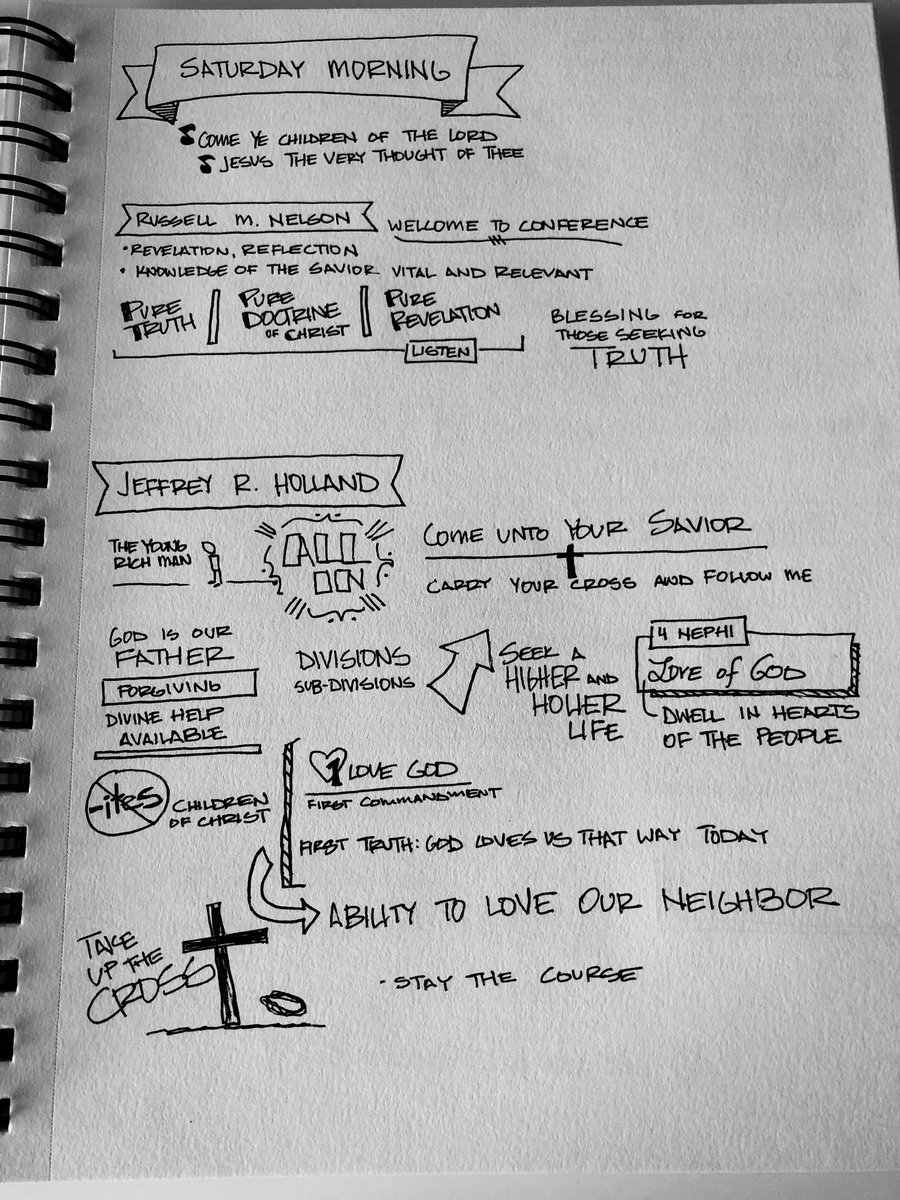 SATURDAY MORNING
COME YE CHILDREN OF THE LORD
JESUS THE VERY THOUGHT OF THEE
RUSSELL M. NELSON
WELCOME TO CONFERENCE
• REVELATION, REFLECTION
• KNOWLEDGE OF THE SAVIOR VITAL AND RELEVANT
PURE
TRUTH
PURE
DOCTRINE
OF CHRIST
PURE
REVELATION
LISTEN
BLESSING FOR
THOSE SEEKING
TRUTH
JEFFREY R. HOLLAND
THE YOUNG
RICH MAN
ALL
IN
COME UNTO YOUR SAVIOR
CARRY YOUR CROSS AND FOLLOW ME
GOD IS OUR
FATHER
FORGIVING
DIVINE HELP
AVAILABLE
DIVISIONS
SUB-DIVISIONS
SEEK A
HIGHER AND
HOLIER
LIFE
4 NEPHI
LOVE of GOD
DWELL IN HEARTS
OF THE PEOPLE
-ites
CHILDREN
OF CHRIST
1 LOVE GOD
FIRST COMMANDMENT
FIRST TRUTH: GOD LOVES US THAT WAY TODAY
ABILITY TO LOVE OUR NEIGHBOR
TAKE
UP THE
CROSS
• STAY THE COURSE